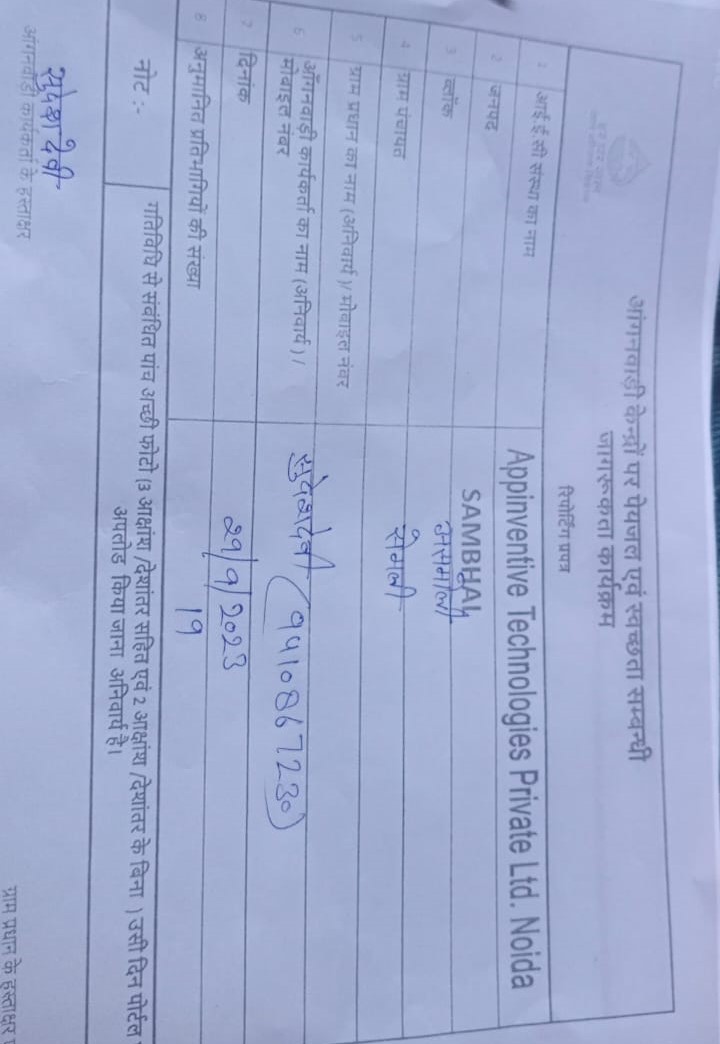 आंगनवाड़ी केन्द्रों पर पेयजल एवं स्वच्छता सम्बन्धी
जागरूकता कार्यक्रम
रिपोर्टिंग प्रपत्र
1 आई ई सी संस्था का नाम Appinventive Technologies Private Ltd. Noida
2 जनपद SAMBHAL
3 ब्लॉक असमोली
4 ग्राम पंचायत
5 ग्राम प्रधान का नाम (अनिवार्य )/ मोबाइल नंबर
6 आँगनवाड़ी कार्यकर्ता का नाम (अनिवार्य ) /
मोबाइल नंबर सुदेशदेवी (9410867230)
7 दिनांक 29/9/2023
8 अनुमानित प्रतिभागियों की संख्या 19
नोट :- गतिविधि से संबंधित पांच अच्छी फोटो (3 आक्षांश /देशांतर सहित एवं 2 आक्षांश /देशांतर के बिना ) उसी दिन पोर्टल
अपलोड किया जाना अनिवार्य है।
सुदेश देवी
आंगनवाड़ी कार्यकर्ता के हस्ताक्षर
ग्राम प्रधान के हस्ताक्षर